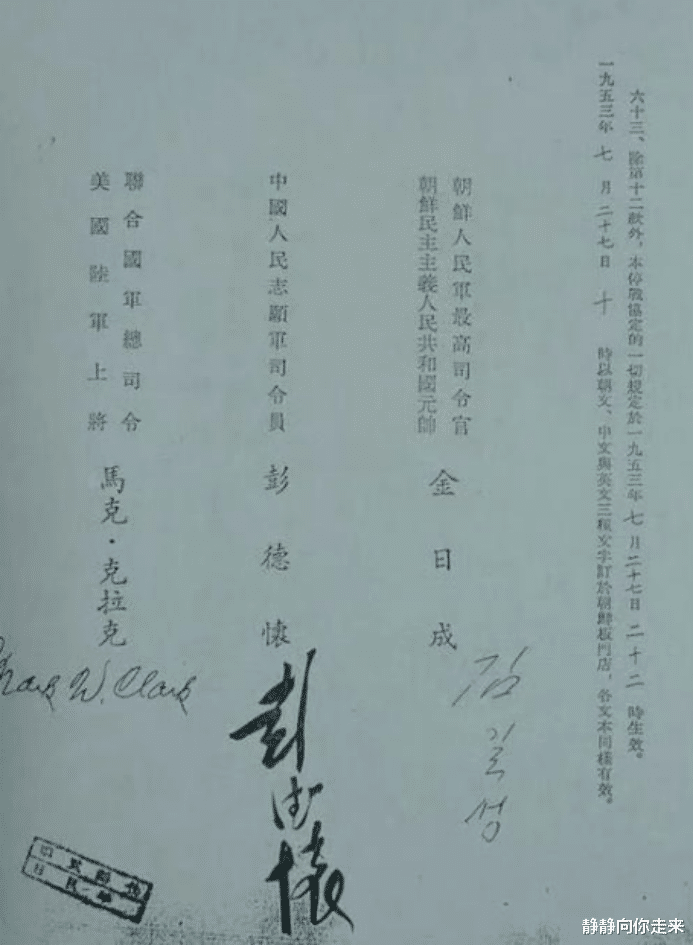 六十三、除第十二款外，本停戰協定的一切規定於一九五三年七月二十七日二十二時生效。
一九五三年七月二十七日十時以朝文、中文與英文三種文字訂於朝鮮板門店，各文本同樣有效。
朝鮮人民軍最高司令官
朝鮮民主主義人民共和國元帥
金日成
김일성
中國人民志願軍司令員
彭德懷
彭德懷
聯合國軍總司令
美國陸軍上將
馬克·克拉克
Mark W. Clark
静静向你走来